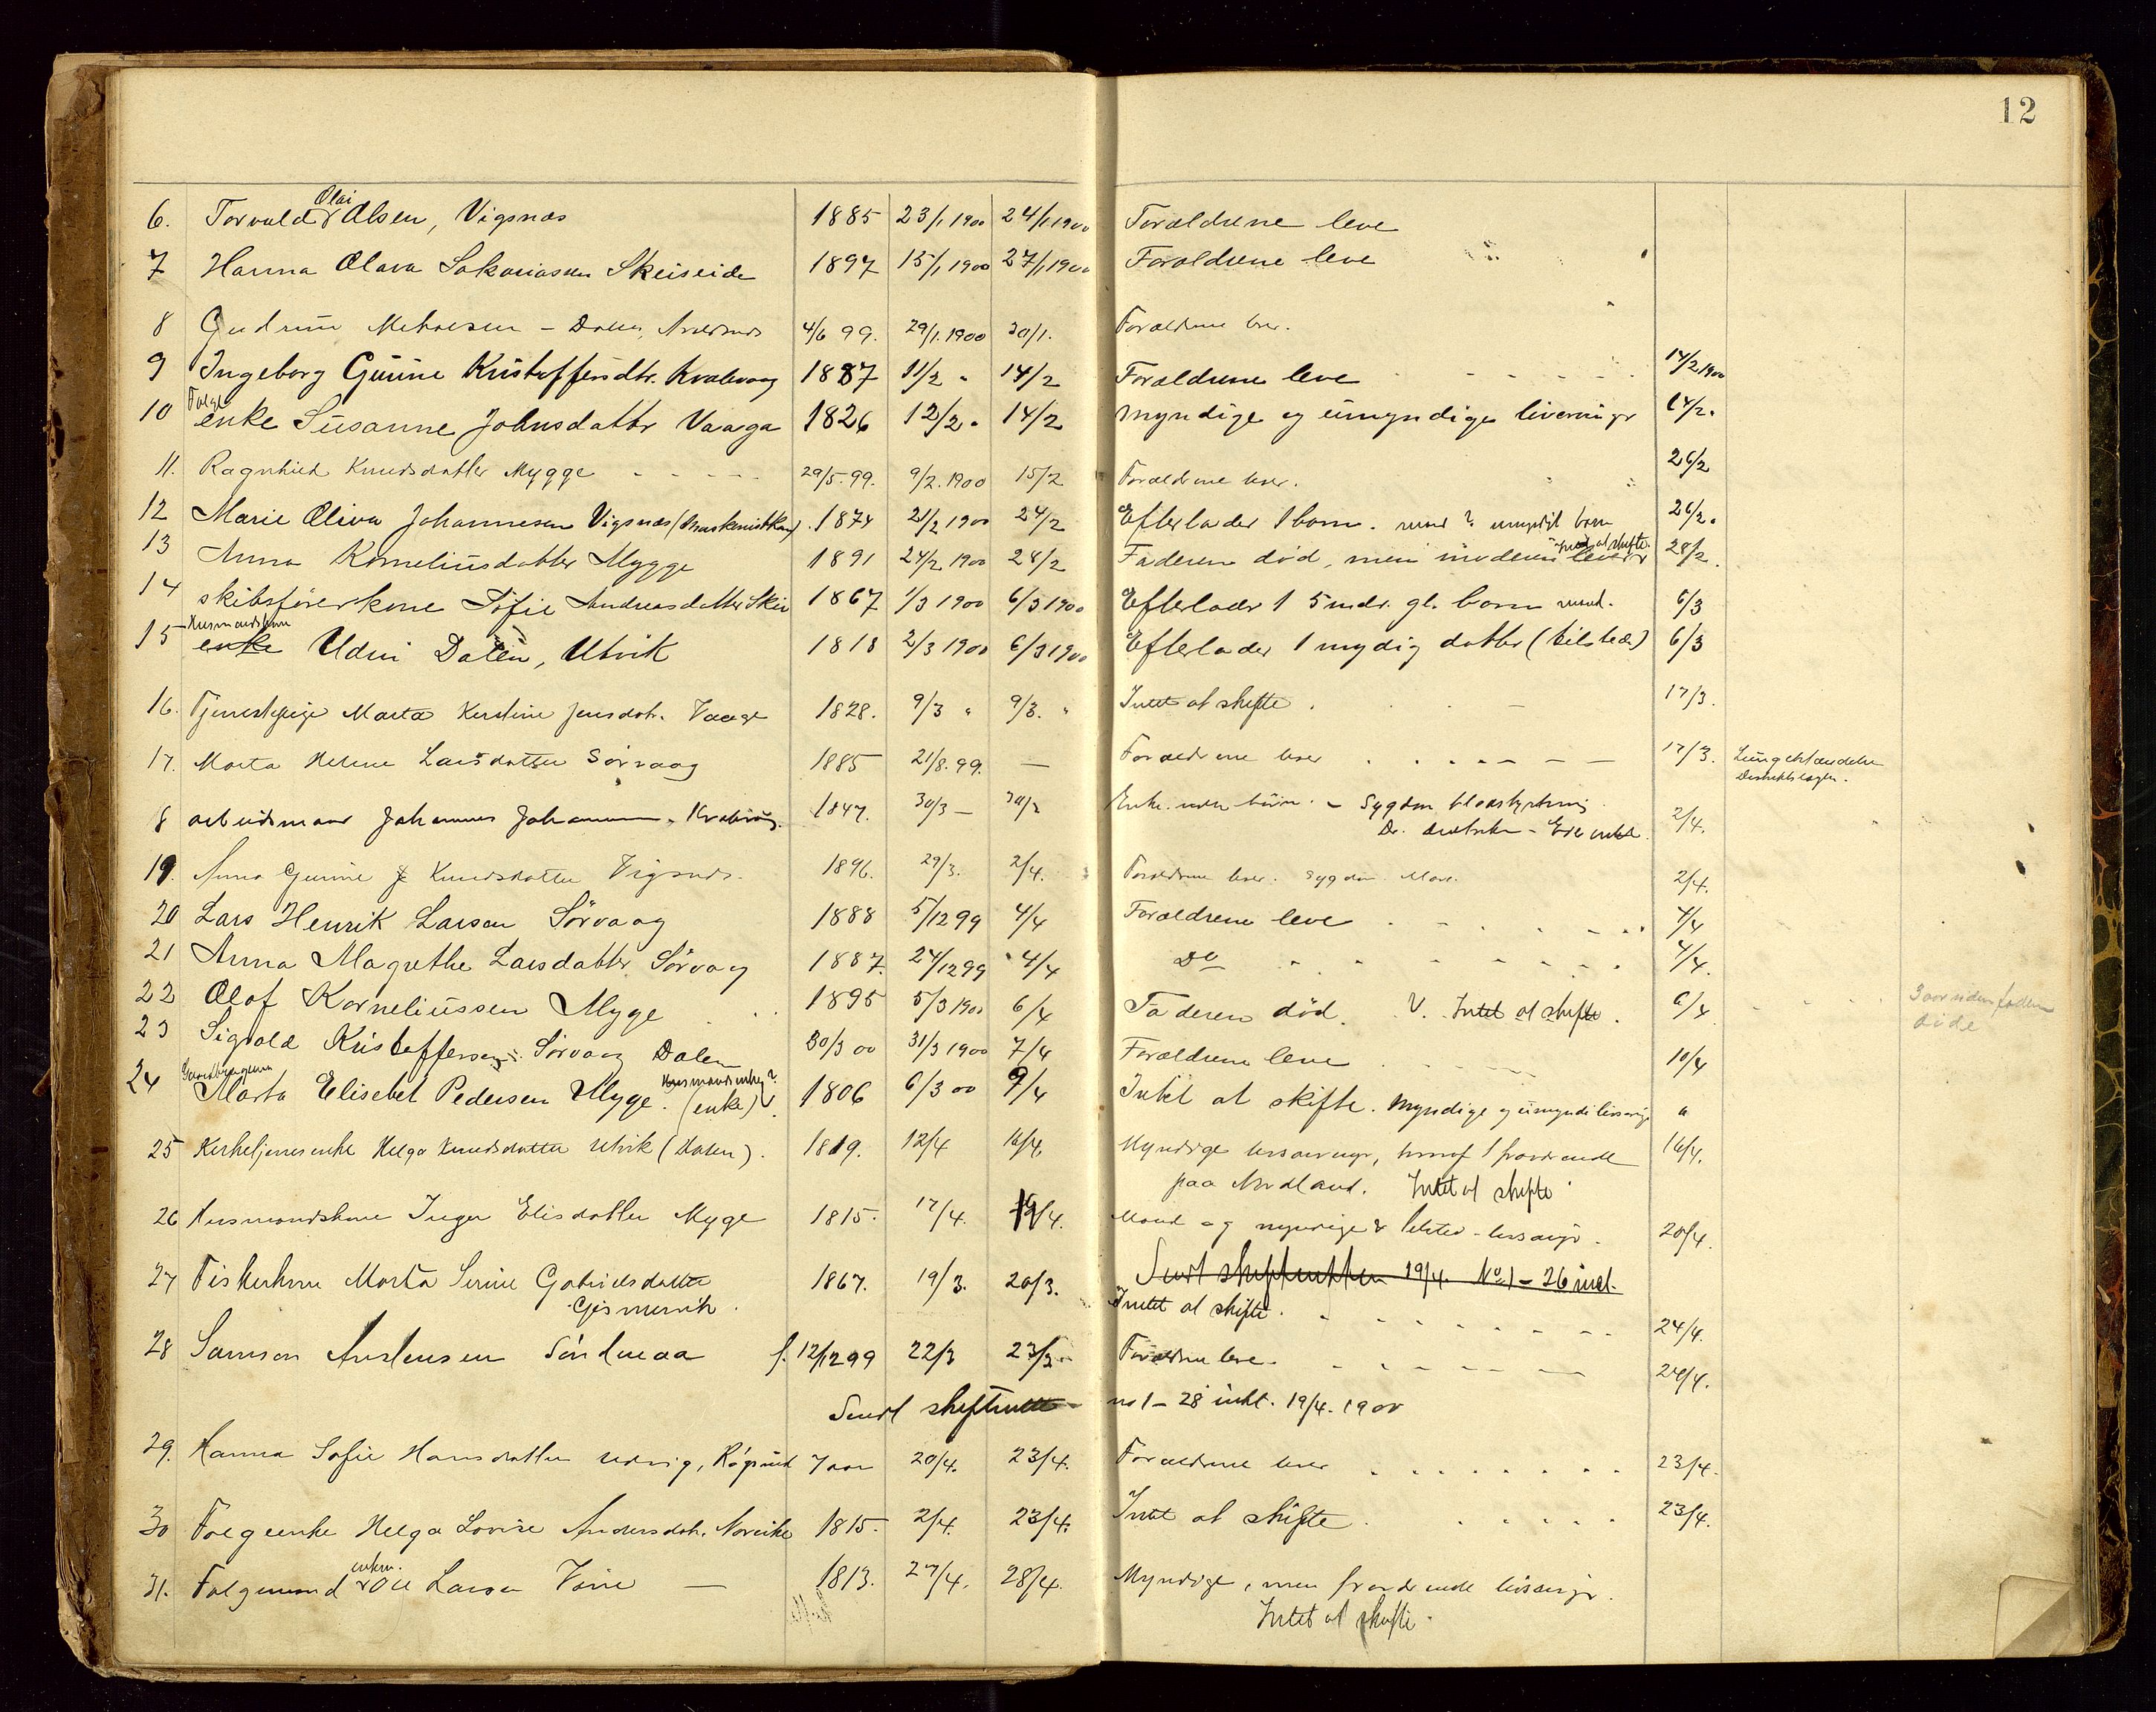 12
6. Torvald Olai Olsen, Vigsnæs 1885 23/1 1900 24/1 1900 Forældrene leve
7 Hanna Olava Sakariassen Skeiseide 1897 15/1 1900 27/1 1900 Forældrene leve
8 Gudrun 4/6 99. 29/1. 1900 30/1. Forældrene lever.
9 Ingeborg Gurine Kristoffersdtr. Kvalevaag 1887 11/2 " 14/2 Forældrene leve 14/2 1900
10 Folge enke Susanne Johnsdatter Vaaga 1826 12/2 " 14/2 Myndige og umyndige livsarvinger 14/2.
11. Ragnhild Knudsdatter Mygge 29/5. 99. 9/2. 1900 15/2 Forældrene lever. 26/2
12 Marie Oliva Johannesen Vigsnæs 1874 21/2 1900 24/2 Efterlader 1 barn. mand 26/2.
13 Anna Korneliusdatter Mygge 1891 24/2 1900 28/2 Faderen død, men moderen lever Intet at skifte. 28/2.
14 skibsførerkone Sofie Andreasdatter Skei 1867 1/3 1900 6/3 1900 Efterlader 1 5 mdr. gl. barn mand. 6/3
15 Husmandskone enke Udni Dalen, Utvik 1818 2/3 1900 6/3 1900 Efterlader 1 mydig datter (tilstede) 6/3
16. Tjenestepige Marta Kirstine Jensdtr. Vaage 1828. 9/3 " 9/3. " Intet at skifte. 17/3.
17. Marta Helene Larsdatter Sørvaag 1885 21/8. 99. — Forældrene lever 17/3. Lungebetændelse
Distriktslægen.
8 arbeidsmand Johannes 1847. 30/3 — 30/3 Enke uden børn. - Sygdom blodstyrtning
Dr. 2/4.
19. Anna Gurine Knudsdatter Vigsnæs. 1896. 29/3. 2/4. Forældrene lever. Sygdom 2/4.
20 Lars Henrik Larsen Sørvaag 1888 5/12 99 4/4 Forældrene leve 4/4
21 Anna Magrethe Larsdatter Sørvaag 1887. 24/12 99 4/4 Do 4/4.
22 Olaf Korneliussen Myge 1895 5/3 1900 6/4 Faderen død. V. Intet at skifte. 6/4 3 aar siden faderen
døde
23 Sigvald Kristoffersen Sørvaag Dalen 30/3 00 31/3 1900 7/4 Forældrene leve 10/4
24 Marta Elisebet Pedersen Myge. (enke) 1806 6/3 00 9/4 Intet at skifte. Myndige og umyndi livsarvinger "
25 Kirketjenerenke Helga Knudsdatter Utvik (Dalen). 1819. 12/4 16/4. Myndige livsarvinger, hvoraf 1 fraværende 16/4.
paa Nordland. Intet at skifte
26 Husmandskone Inger Elisdatter Myge 1815. 17/4. 19/4. Mand og myndige livsarvgr. 20/4.
Sendt skifteretten 19/4. No 1 - 26 incl.
27 Fiskerkone Marta Serine Gabrielsdatter 1867. 19/3. 20/3. Intet at skifte. 24/4.
Gismervik.
28 Samson Andersen Søndenaa f. 12/12 99 22/3 23/3 Forældrene leve. 24/4.
Sendt skifteretten no 1 - 28 inkl. 19/4. 1900
29. Hanna Sofie Hansdatter Udvig, 7 aar 20/4. 23/4. Forældrene lever 23/4.
30 Folgeenke Helga Lovise Andersdtr. Norvike 1815. 2/4. 23/4. Intet at skifte. 23/4.
31. Folgemand enkem. Ole Larsen 1813. 27/4. 28/4. Myndige, men fraværende livsarvgr.
Intet at skifte.